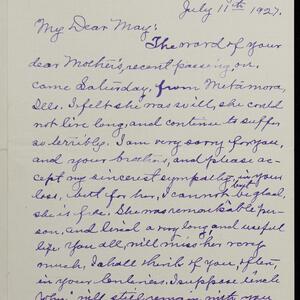 July 11th 1927.
My Dear May:
The word of your
dear Mother's, recent passing on,
came Saturday, from Metamora,
Ills. I felt she was so ill, she could
not live long, and continue to suffer
so terribly. I am very sorry for you,
and your brothers, and please ac-
cept my sincerest sympathy, in your
loss, but for her, I cannot but be glad,
she is free. She was remarkable per-
son, and lived a very long and useful
life. You all, will miss her very
much, I shall think of you often,
in your loneliness. I suppose Uncle
John, will still remain with you